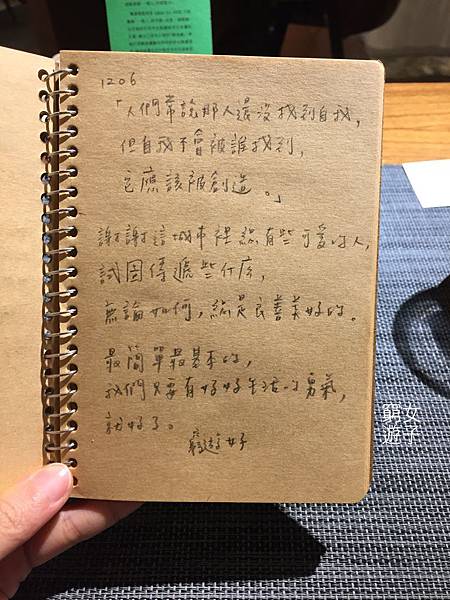 1206
「人們常說那人還沒找到自我,
但自我不會被誰找到,
它應該被創造。」
謝謝這城市裡總有些可愛的人,
試圖傳遞些什麼,
無論如何,總是良善美好的。
最簡單最基本的,
我們只要有好好生活的勇氣,
就好了。
窮遊女子
窮遊女子